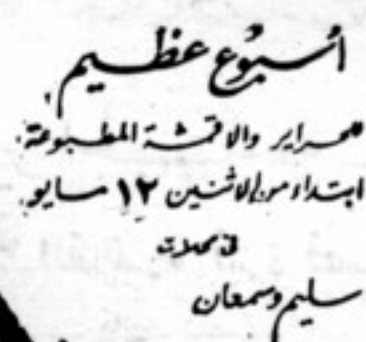 أسبوع عظيم
للحراير والاقمشة المطبوعة
ابتداء من الاثنين ١٢ مايو
فى محلات
سليم وسمعان